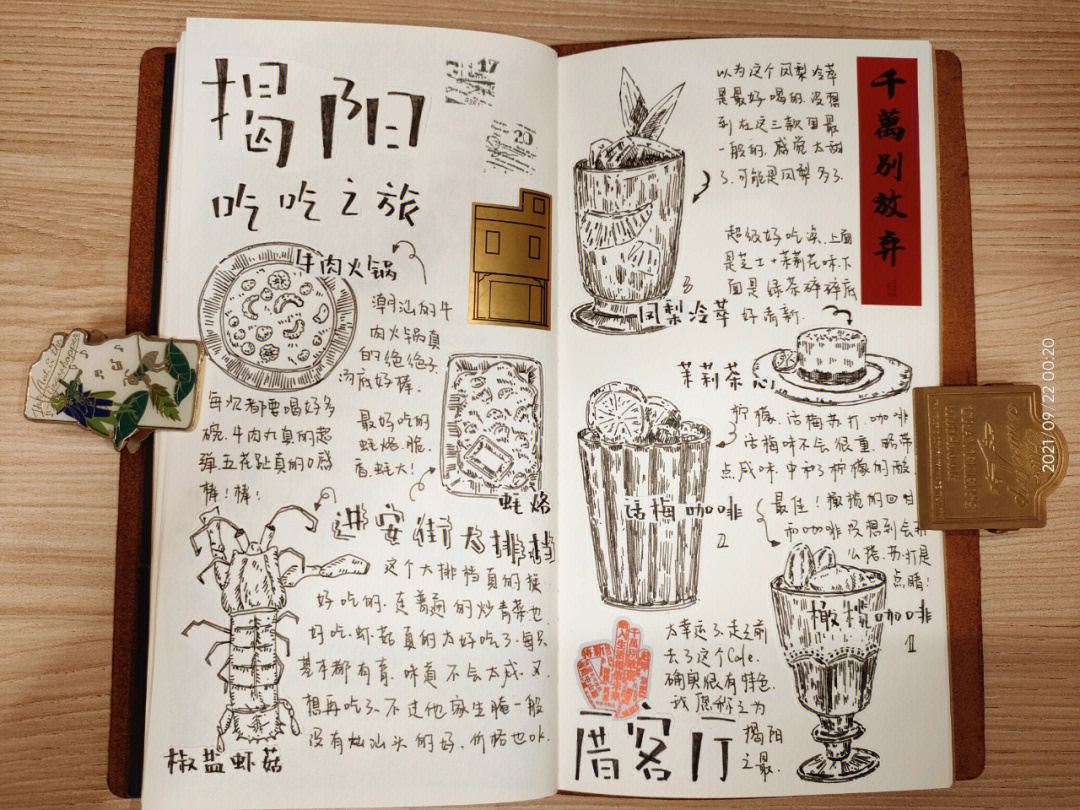 揭阳
17
20
吃吃之旅
牛肉火锅
潮汕的牛
肉火锅真
的绝绝子
汤底好棒.
每次都要喝好多
碗.牛肉丸真的超
弹.五花趾真的口感
棒！棒！
最好吃的
蚝烙.脆.
香.蚝大！
蚝烙
进安街大排档
这个大排档真的挺
好吃的.连普通的炒青菜也
好吃.虾菇真的太好吃了.每只
基本都有膏.味道不会太咸.又
想再吃了.不过他家生腌一般
没有汕头的好.价格也ok.
椒盐虾菇
以为这个凤梨冷萃
是最好喝的.没想
到在这三款里最
一般的.感觉太甜
了.可能是凤梨多了.
3
凤梨冷萃
千萬别放弃
超级好吃诶.上面
是芝士+茉莉花味下
面是绿茶碎碎底
好清新.
茉莉茶
柠檬.话梅苏打.咖啡
话梅味不会很重.略带
点咸味中和了柠檬的酸
话梅咖啡
2
最佳！橄榄的回甘
和咖啡没想到会
么搭.苏打是
点睛！
橄榄咖啡
1
太幸运了.走之前
去了这个Cafe.
确实很有特色.
我愿称之为
揭阳
之最.
厝客厅
2021/09/22 00:20